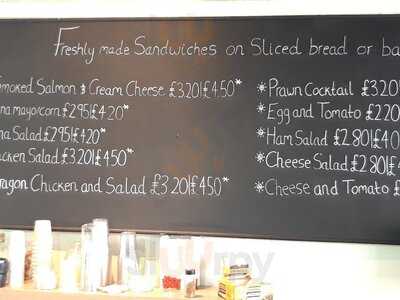 Freshly made Sandwiches on Sliced bread or ba
moked Salmon & Cream Cheese £3.20|£4.50*
na mayo/corn £2.95|£4.20*
na Salad £2.95|£4.20*
icken Salad £3.20|£4.50*
ragon Chicken and Salad £3.20|£4.50*
*Prawn Cocktail £3.20
*Egg and Tomato £2.20
*Ham Salad £2.80|£4.0
*Cheese Salad £2.80|£4
*Cheese and Tomato £